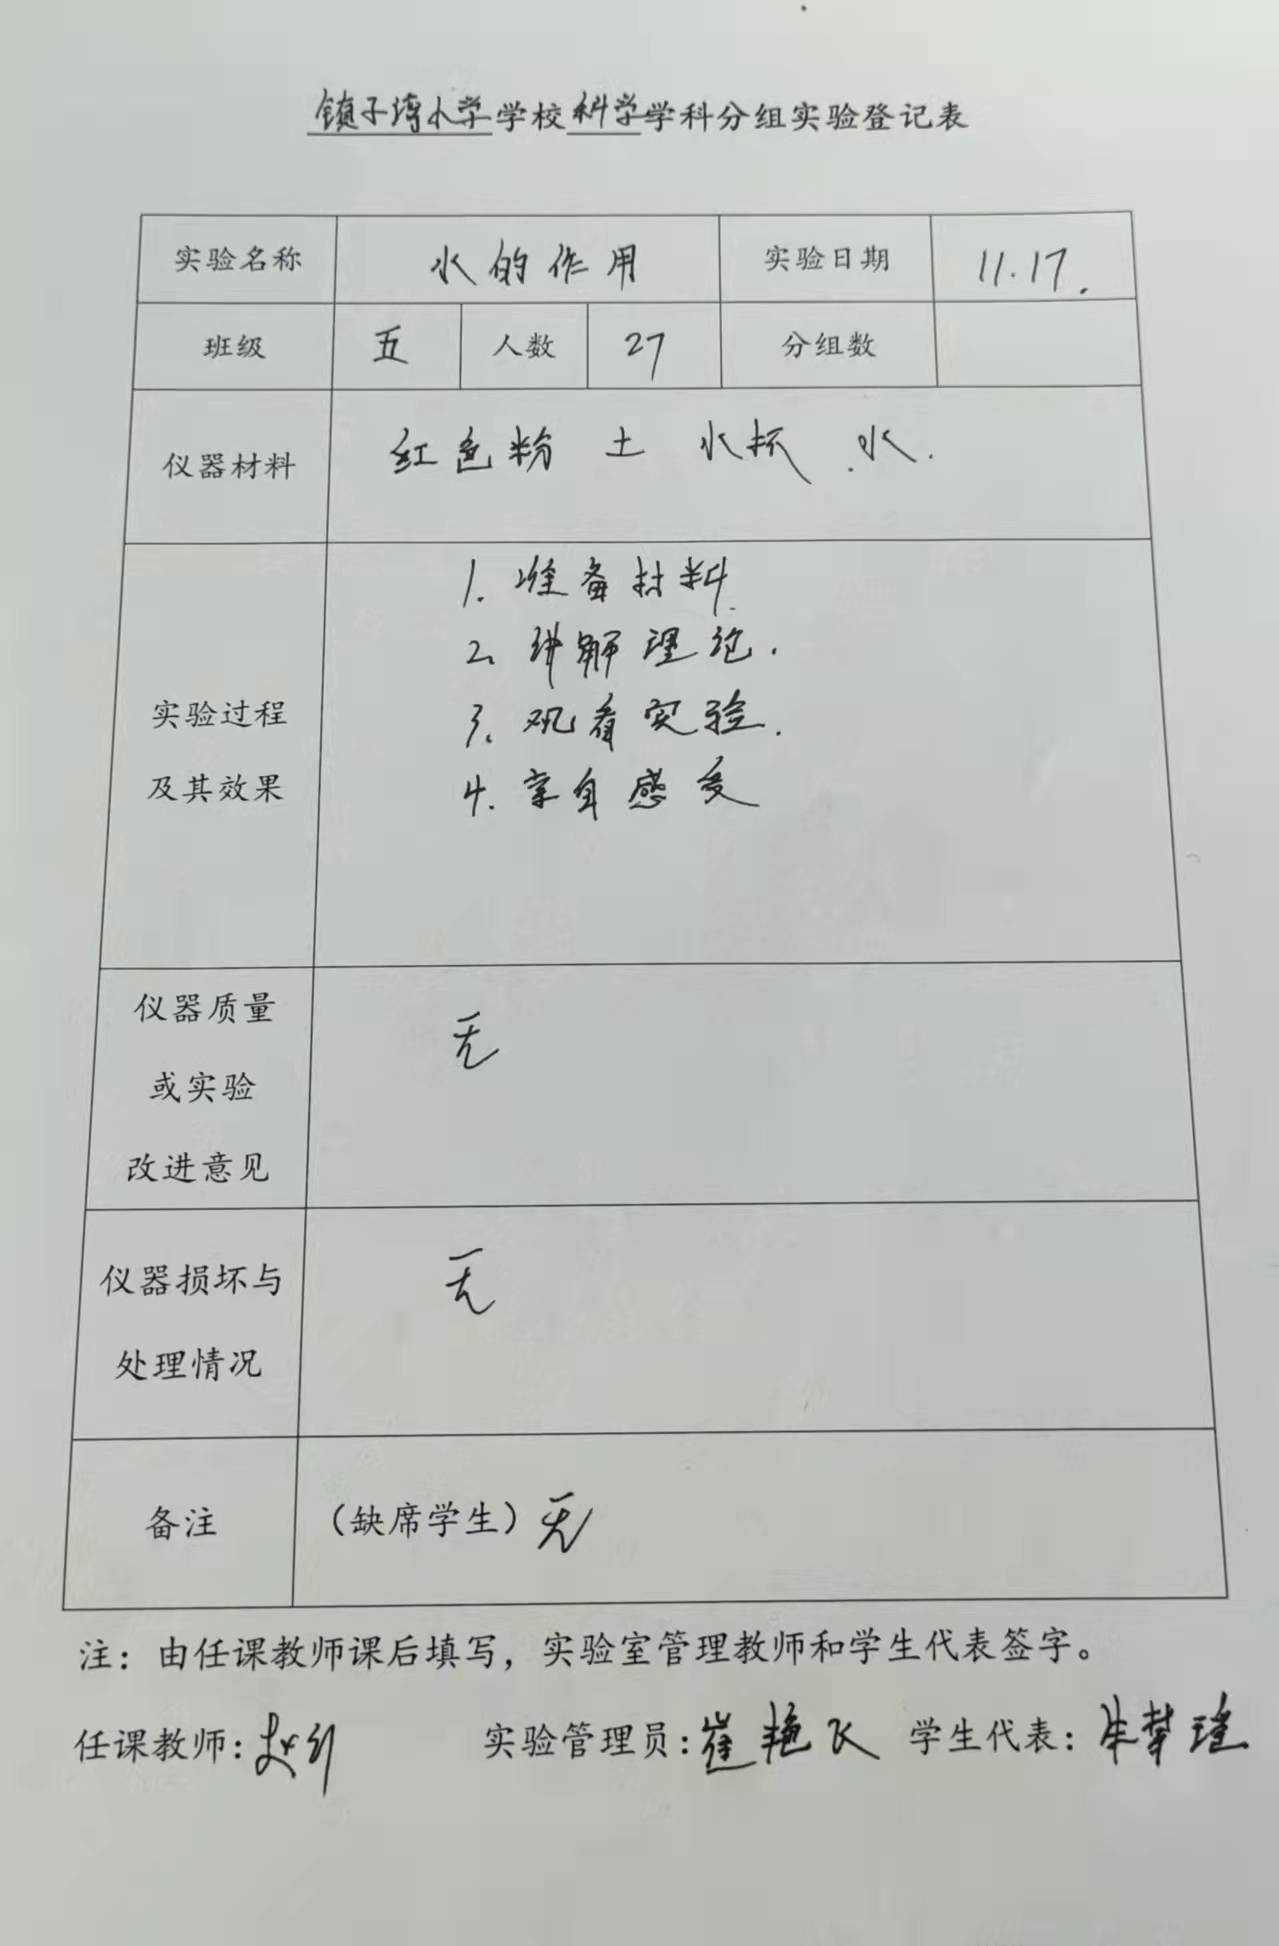 镇子湾小学学校科学学科分组实验登记表
实验名称 水的作用 实验日期 11.17.
班级 五 人数 27 分组数
仪器材料 红色粉 土 水杯 水.
实验过程及其效果
1. 准备材料.
2. 讲解理论.
3. 观看实验.
4. 亲自感受
仪器质量
或实验 无
改进意见
仪器损坏与 无
处理情况
备注 (缺席学生) 无
注：由任课教师课后填写，实验室管理教师和学生代表签字。
任课教师: 实验管理员: 崔艳飞 学生代表: 梦瑶